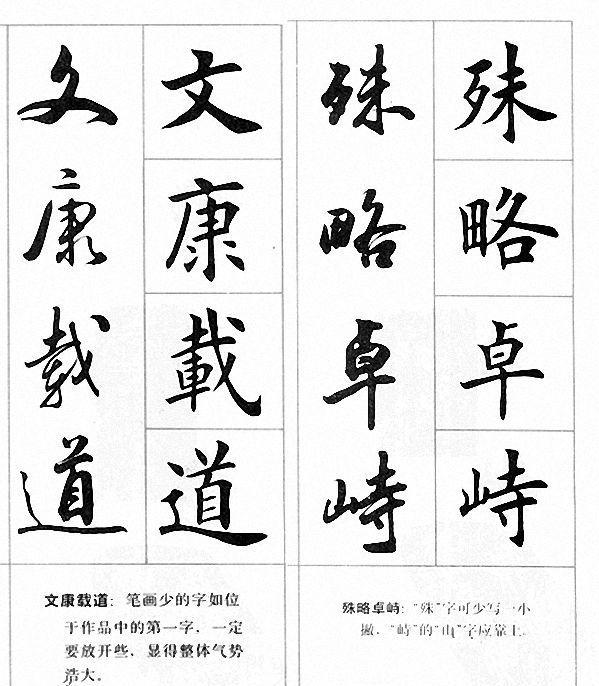 文 文
康 康
载 載
道 道
文康载道：笔画少的字如位
于作品中的第一字，一定
要放开些，显得整体气势
浩大。
殊 殊
略 略
卓 卓
峙 峙
殊略卓峙：“殊”字可少写一小
撇，“峙”的“山”字应靠上。